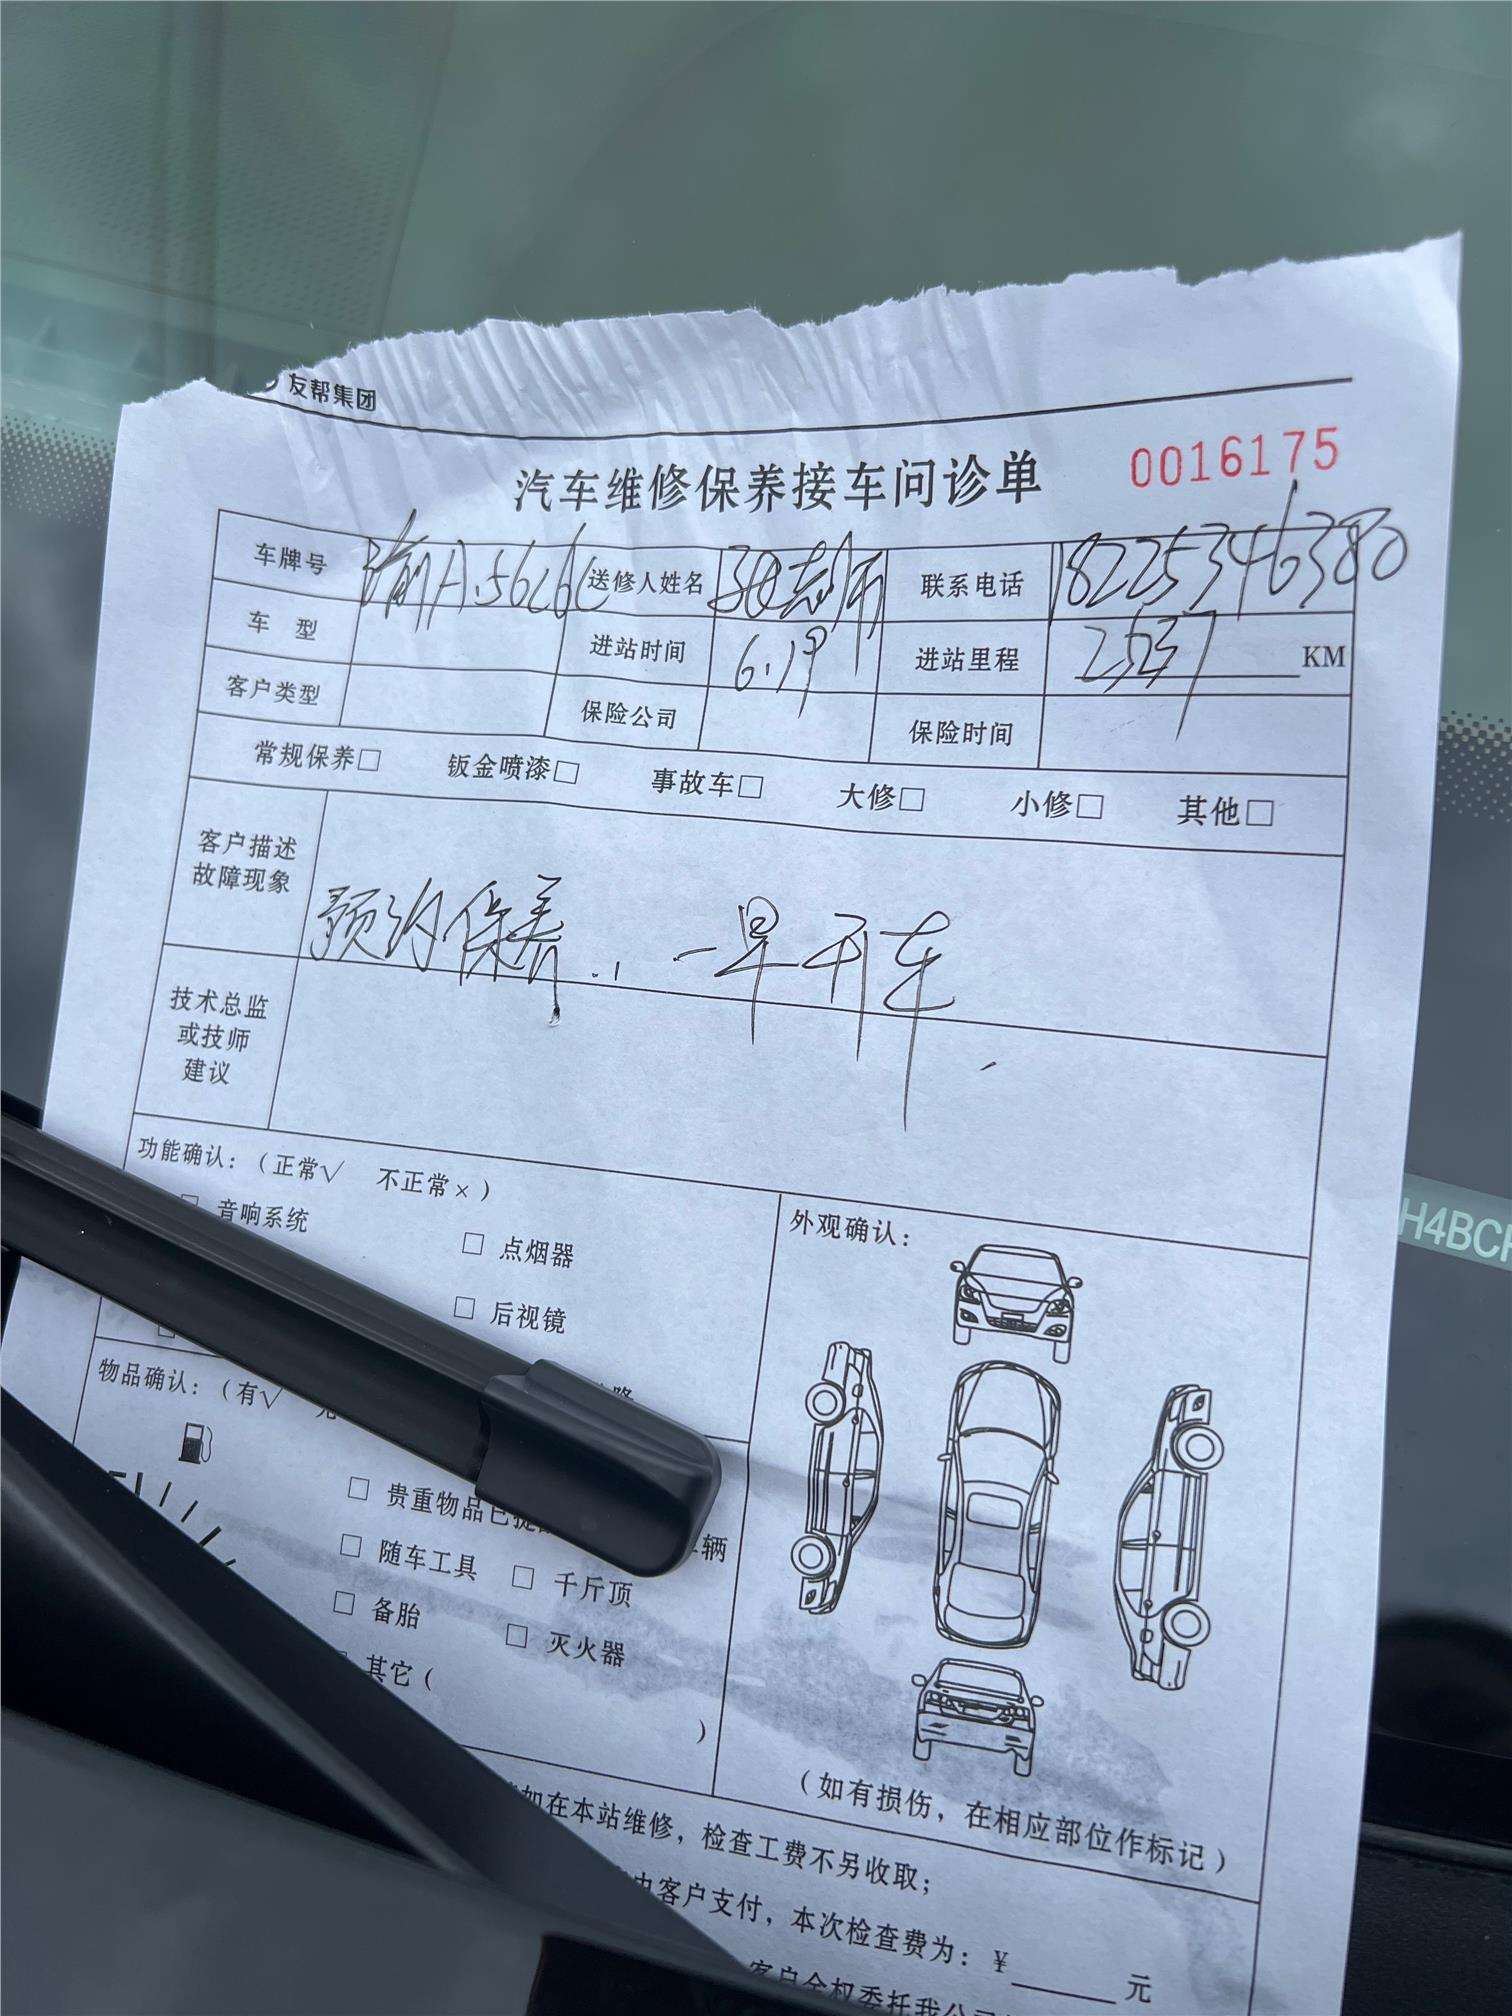 友帮集团
汽车维修保养接车问诊单 0016175
车牌号 渝A.56C6C 送修人姓名 联系电话 18225346380
车 型 进站时间 6.19 进站里程 2537 KM
客户类型 保险公司 保险时间
常规保养□ 钣金喷漆□ 事故车□ 大修□ 小修□ 其他□
客户描述
故障现象
预约保养.. 一早开车
技术总监
或技师
建议
功能确认：（正常√ 不正常×）
□ 音响系统 □ 点烟器
□ 后视镜
外观确认：
物品确认：（有√
□ 贵重物品已提
辆
□ 随车工具 □ 千斤顶
□ 备胎 □ 灭火器
其它（ ）
（如有损伤，在相应部位作标记）
如在本站维修，检查工费不另收取；
由客户支付，本次检查费为：￥______元
客户全权委托我公司
H4BCH